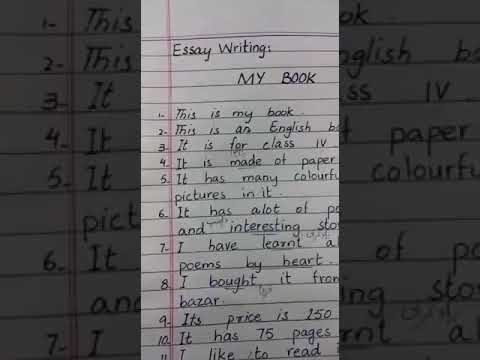 Essay Writing:
MY BOOK
1- This is my book.
2- This is an English bo
3- It is for class IV
4- It is made of paper
5- It has many colourfu
pictures in it.
6- It has alot of po
and interesting sto
7- I have learnt al
poems by heart.
8- I bought it from
bazar.
9- Its price is 250
10- It has 75 pages
11 I like to read